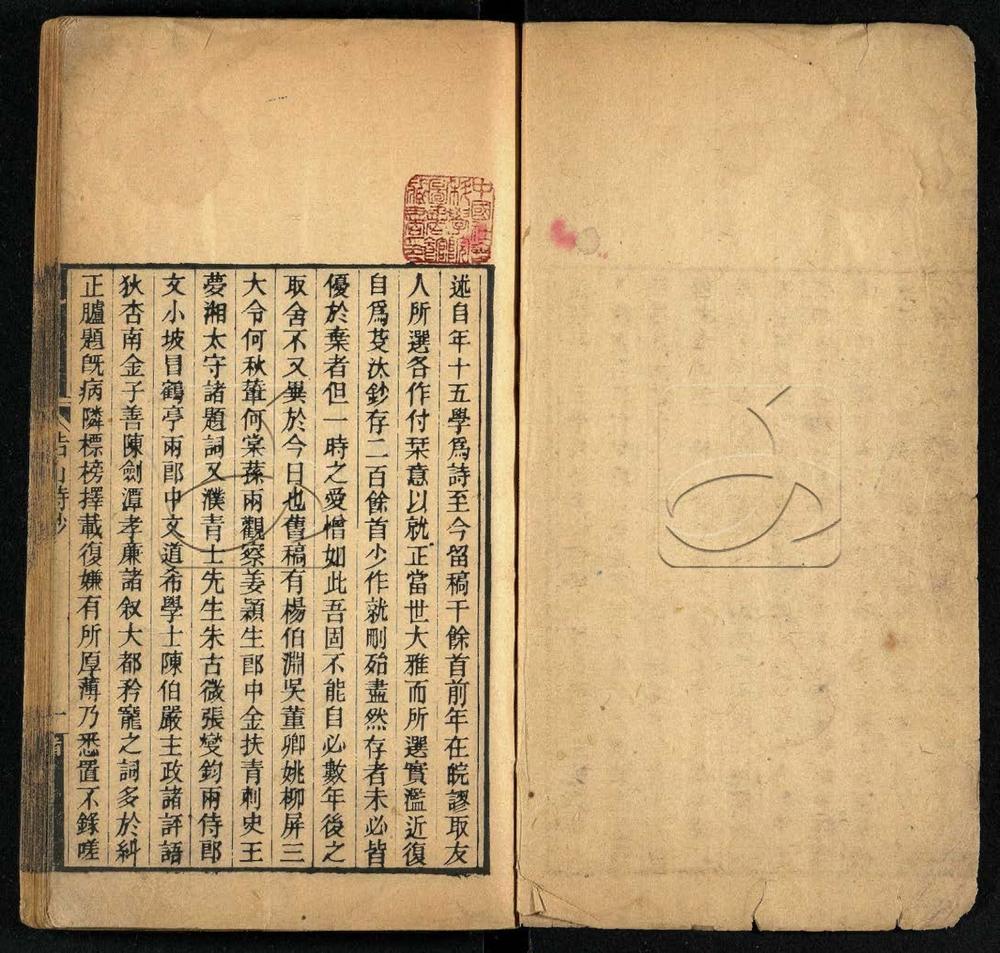 述自年十五學爲詩至今留稿千餘首前年在皖謬取友
人所選各作付栞意以就正當世大雅而所選實濫近復
自爲芟汰鈔存二百餘首少作就刪殆盡然存者未必皆
優於棄者但一時之愛憎如此吾固不能自必數年後之
取舍不又異於今日也舊稿有楊伯淵吳董卿姚柳屏三
大令何秋輦何棠蓀兩觀察姜穎生郎中金扶青刺史王
夢湘太守諸題詞又濮青士先生朱古微張燮鈞兩侍郎
文小坡冒鶴亭兩郎中文道希學士陳伯嚴主政諸評語
狄杏南金子善陳劍潭孝廉諸叙大都矜寵之詞多於糾
正臚題旣病隣標榜擇載復嫌有所厚薄乃悉置不錄嗟
山詩鈔
一
中國社會科學院